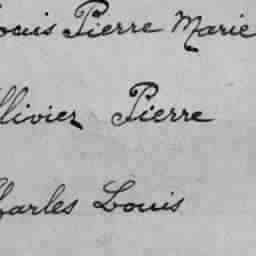 Louis Pierre Marie
Ollivier Pierre
Charles Louis